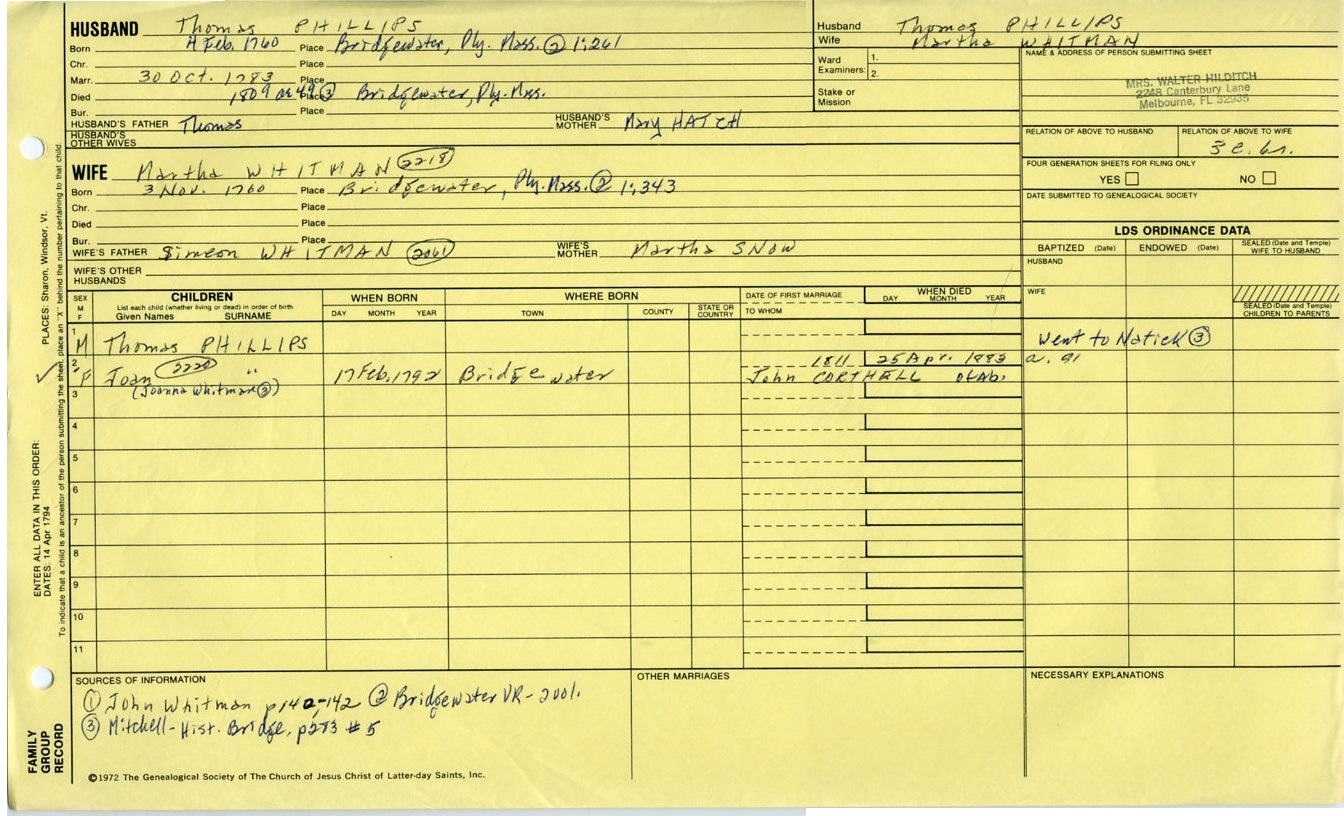 HUSBAND Thomas PHILLIPS
Born 4 Feb. 1760 Place Bridgewater, Ply. Mass. ② 1:261
Chr. Place
Marr. 30 Oct. 1783 Place
Died 1809 or 49 ③ Place Bridgewater, Ply. Mss.
Bur. Place
HUSBAND'S FATHER Thomas HUSBAND'S MOTHER Mary HATCH
HUSBAND'S OTHER WIVES
WIFE Martha WHITMAN 2218
Born 3 Nov. 1760 Place Bridgewater, Ply. Mass. ② 1:343
Chr. Place
Died Place
Bur. Place
WIFE'S FATHER Simeon WHITMAN 2061 WIFE'S MOTHER Martha SNOW
WIFE'S OTHER HUSBANDS
Husband Thomas PHILLIPS
Wife Martha WHITMAN
Ward Examiners: 1. 2.
Stake or Mission
NAME & ADDRESS OF PERSON SUBMITTING SHEET
MRS. WALTER HILDITCH
2248 Canterbury Lane
Melbourne, FL 32935
RELATION OF ABOVE TO HUSBAND RELATION OF ABOVE TO WIFE
FOUR GENERATION SHEETS FOR FILING ONLY
YES NO
DATE SUBMITTED TO GENEALOGICAL SOCIETY
LDS ORDINANCE DATA
BAPTIZED (Date) ENDOWED (Date) SEALED (Date and Temple) WIFE TO HUSBAND
HUSBAND
WIFE
SEALED (Date and Temple) CHILDREN TO PARENTS
SEX M F CHILDREN List each child (whether living or dead) in order of birth Given Names SURNAME WHEN BORN DAY MONTH YEAR WHERE BORN TOWN COUNTY STATE OR COUNTRY DATE OF FIRST MARRIAGE TO WHOM WHEN DIED DAY MONTH YEAR
1 M Thomas PHILLIPS Went to Natick ③
2 F Joan 2220 " 17 Feb. 1792 Bridgewater 1811 25 Apr. 1883 a. 91
(Joanna Whitman ③) John CORTHELL of Ab.
3
4
5
6
7
8
9
10
11
SOURCES OF INFORMATION
① John Whitman p 140-142 ② Bridgewater VR - 2vol.
③ Mitchell - Hist. Bridge, p 273 #5
OTHER MARRIAGES
NECESSARY EXPLANATIONS
©1972 The Genealogical Society of The Church of Jesus Christ of Latter-day Saints, Inc.
FAMILY GROUP RECORD
ENTER ALL DATA IN THIS ORDER:
DATES: 14 Apr 1794 PLACES: Sharon, Windsor, Vt.
To indicate that a child is an ancestor of the person submitting the sheet, place an "X" behind the number pertaining to that child.